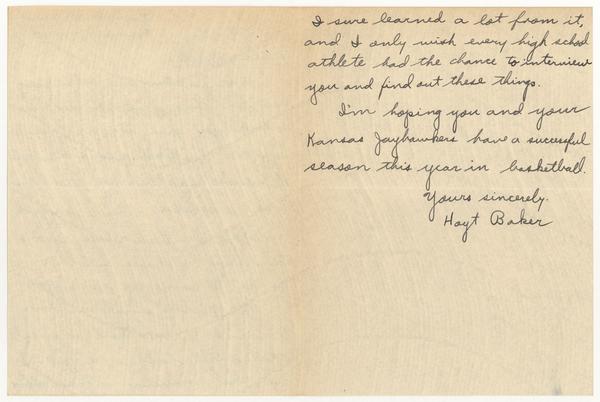 I sure learned a lot from it,
and I only wish every high school
athlete had the chance to interview
you and find out these things.
I'm hoping you and your
Kansas Jayhawkers have a successful
season this year in basketball.
Yours sincerely.
Hoyt Baker